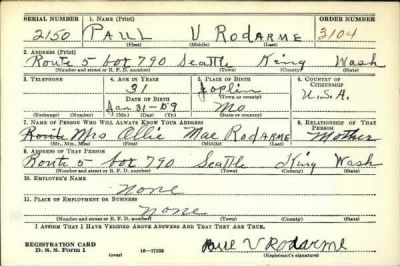 SERIAL NUMBER 1. NAME (Print) ORDER NUMBER
2150 PAUL V RODARME 2104
(First) (Middle) (Last)
2. ADDRESS (Print)
Route 5 box 790 Seattle King Wash
(Number and street or R. F. D. number) (Town) (County) (State)
3. TELEPHONE 4. AGE IN YEARS 5. PLACE OF BIRTH 6. COUNTRY OF CITIZENSHIP
31 Joplin
DATE OF BIRTH (Town or county) U.S.A.
Jan 31-09 Mo
(Exchange) (Number) (Mo.) (Day) (Yr.) (State or country)
7. NAME OF PERSON WHO WILL ALWAYS KNOW YOUR ADDRESS 8. RELATIONSHIP OF THAT PERSON
Route Mrs Allie Mae RODARME Mother
(Mr., Mrs., Miss) (First) (Middle) (Last)
9. ADDRESS OF THAT PERSON
Route 5 box 790 Seattle King Wash
(Number and street or R. F. D. number) (Town) (County) (State)
10. EMPLOYER'S NAME
None
11. PLACE OF EMPLOYMENT OR BUSINESS
none
(Number and street or R. F. D. number) (Town) (County) (State)
I AFFIRM THAT I HAVE VERIFIED ABOVE ANSWERS AND THAT THEY ARE TRUE.
REGISTRATION CARD
D. S. S. Form 1 (over) Paul V Rodarme
(Registrant's signature)